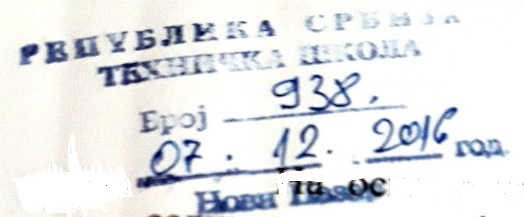 РЕПУБЛИКА СРБИЈА
ТЕХНИЧКА ШКОЛА
Број 938.
07. 12. 2016 год.
Нови Пазар